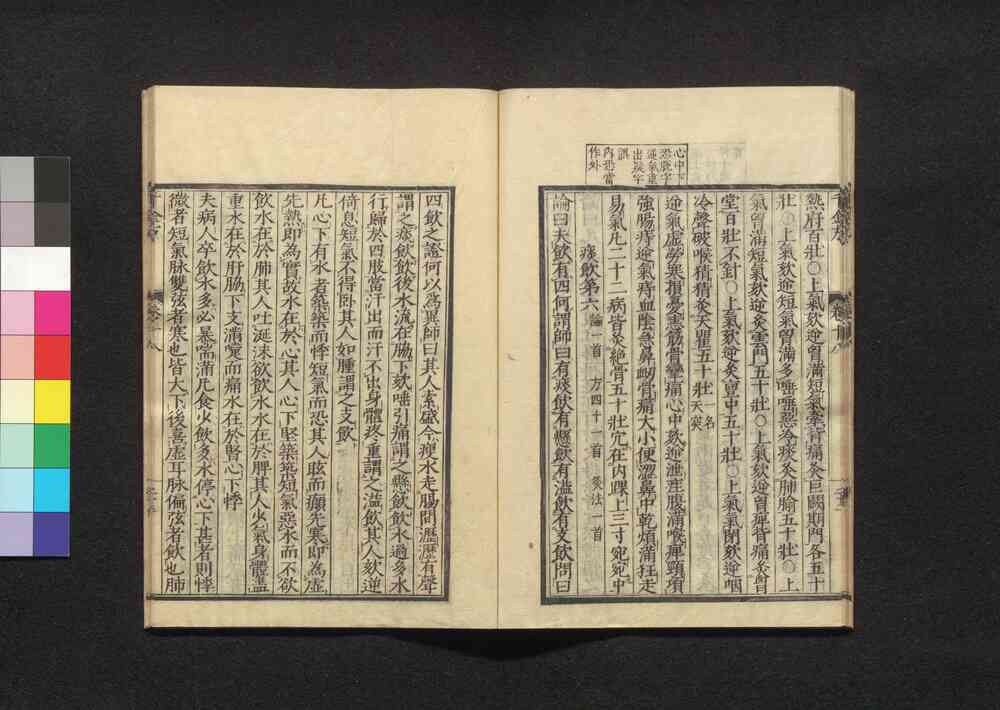 心中下
恐脱字
逆氣重
出疑字
誤
内恐當
作外
熱府百壯○上氣欬逆胷滿短氣牽背痛灸巨闕期門各五十
壯○上氣欬逆短氣胷滿多唾唾惡冷痰灸肺腧五十壯○上
氣胷滿短氣欬逆灸雲門五十壯○上氣欬逆胷痺背痛灸胷
堂百壯不針○上氣欬逆灸亶中五十壯○上氣氣閉欬逆咽
冷聲破喉猜猜灸天瞿五十壯一名天突
逆氣虛勞寒損憂恚筋骨攣痛心中欬逆泄注腹滿喉痺頸項
強腸痔逆氣痔血陰急鼻衄骨痛大小便澀鼻中乾煩滿狂走
易氣凡二十二病皆灸絶骨五十壯穴在内踝上三寸宛宛中
痰飲第六論一首 方四十一首 灸法一首
論曰夫飲有四何謂師曰有痰飲有懸飲有溢飲有支飲問曰
四飲之證何以爲異師曰其人素盛今瘦水走腸間瀝瀝有聲
謂之痰飲飲後水流在脇下欬唾引痛謂之懸飲飲水過多水
行歸於四肢當汗出而汗不出身體疼重謂之溢飲其人欬逆
倚息短氣不得卧其人如腫謂之支飲
凡心下有水者築築而悸短氣而恐其人眩而癲先寒即爲虛
先熱即爲實故水在於心其人心下堅築築短氣惡水而不欲
飲水在於肺其人吐涎沫欲飲水水在於脾其人少氣身體盡
重水在於肝脇下支滿嚏而痛水在於腎心下悸
夫病人卒飲水多必暴喘滿凡食少飲多水停心下甚者則悸
微者短氣脉雙弦者寒也皆大下後喜虛耳脉偏弦者飲也肺